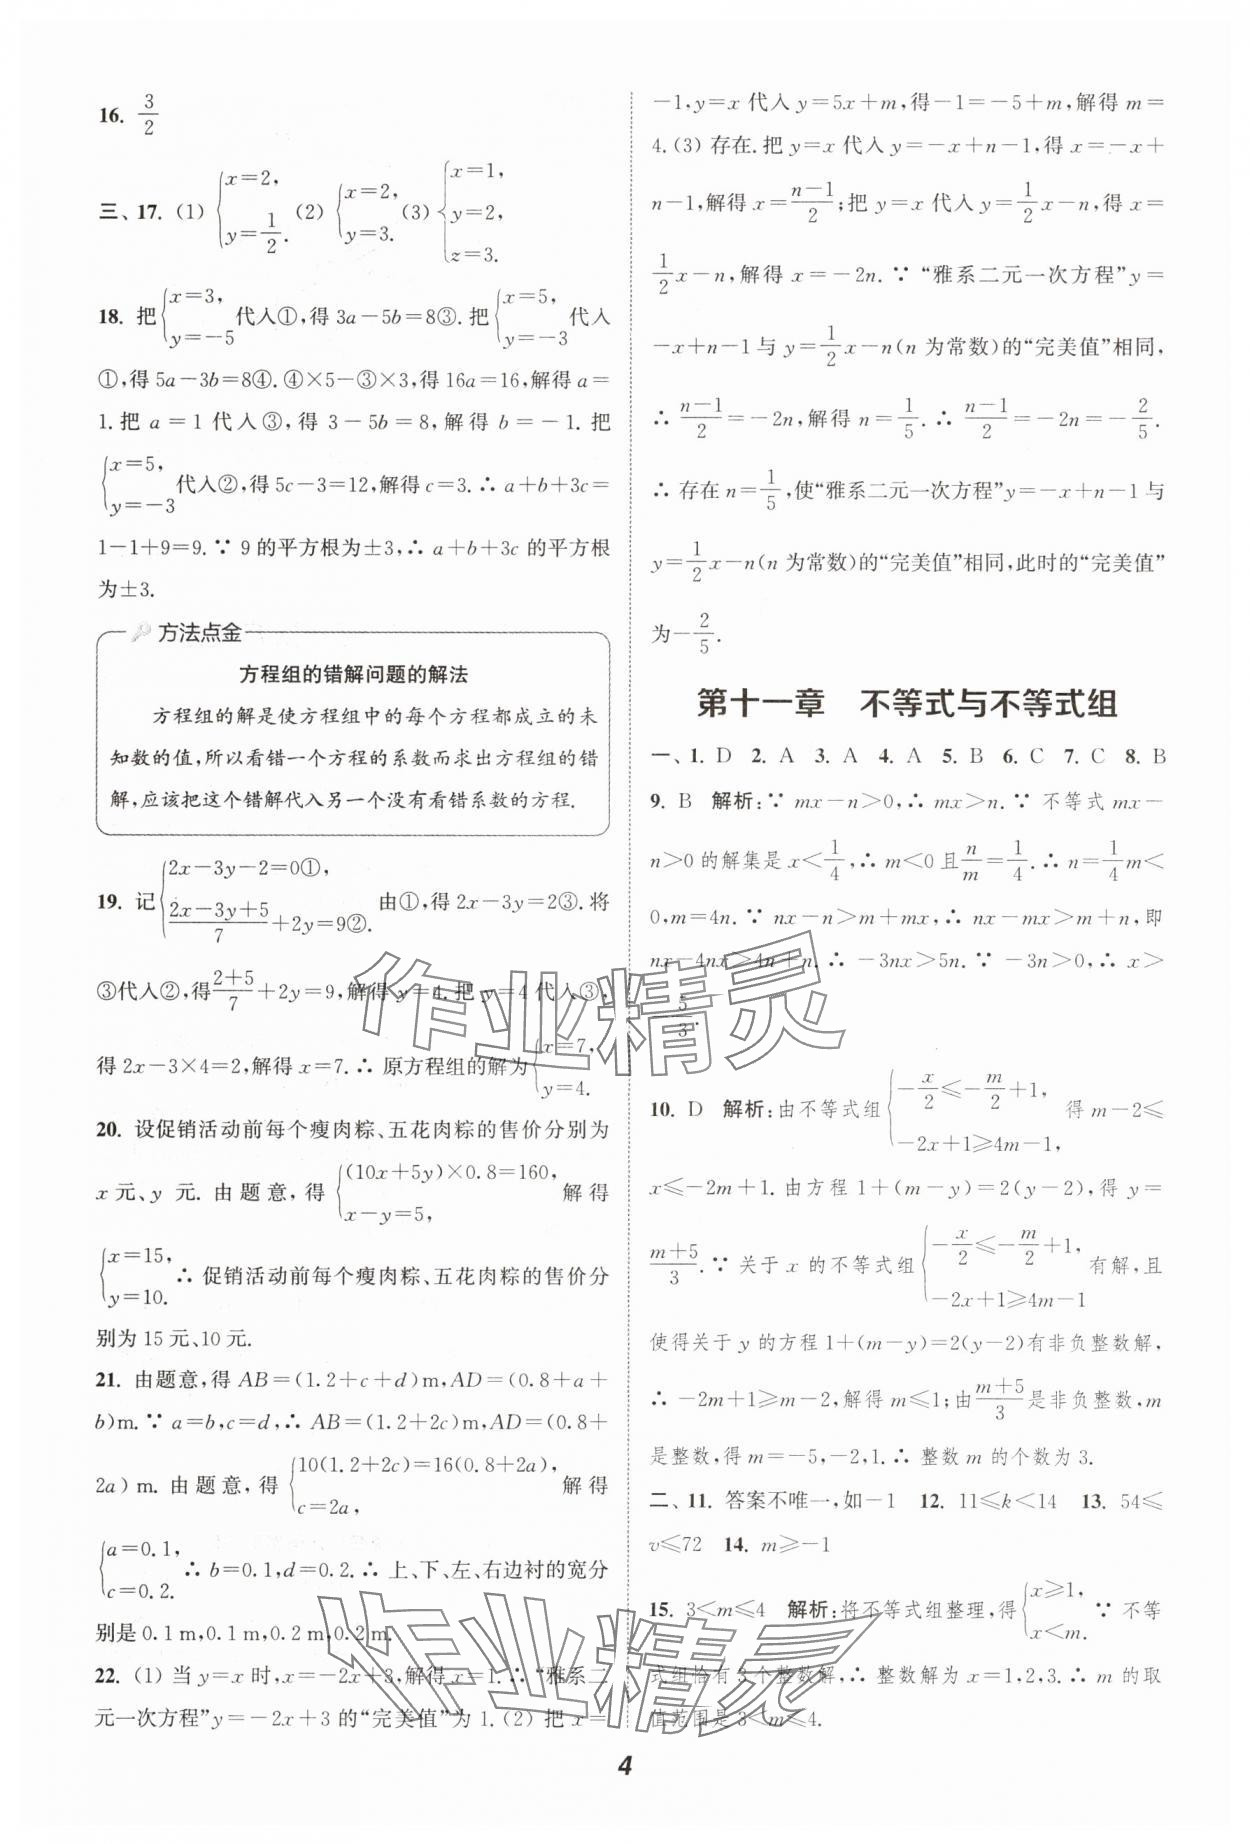 16. 3/2
三、17. (1) {x=2, y=1/2. (2) {x=2, y=3. (3) {x=1, y=2, z=3.
18. 把{x=3, y=-5代入①,得3a-5b=8③.把{x=5, y=-3代入
①,得5a-3b=8④.④×5-③×3,得16a=16,解得a=
1.把a=1代入③,得3-5b=8,解得b=-1.把
{x=5, y=-3代入②,得5c-3=12,解得c=3.∴a+b+3c=
1-1+9=9.∵9的平方根为±3,∴a+b+3c的平方根
为±3.
方法点金
方程组的错解问题的解法
方程组的解是使方程组中的每个方程都成立的未
知数的值,所以看错一个方程的系数而求出方程组的错
解,应该把这个错解代入另一个没有看错系数的方程.
19. 记{2x-3y-2=0①, (2x-3y+5)/7+2y=9②. 由①,得2x-3y=2③.将
③代入②,得(2+5)/7+2y=9,解得y=4.把y=4代入③,
得2x-3×4=2,解得x=7.∴原方程组的解为{x=7, y=4.
20. 设促销活动前每个瘦肉粽、五花肉粽的售价分别为
x元、y元.由题意,得{(10x+5y)×0.8=160, x-y=5, 解得
{x=15, y=10. ∴促销活动前每个瘦肉粽、五花肉粽的售价分
别为15元、10元.
21. 由题意,得AB=(1.2+c+d)m,AD=(0.8+a+
b)m.∵a=b,c=d,∴AB=(1.2+2c)m,AD=(0.8+
2a)m.由题意,得{10(1.2+2c)=16(0.8+2a), c=2a, 解得
{a=0.1, c=0.2. ∴b=0.1,d=0.2.∴上、下、左、右边衬的宽分
别是0.1 m,0.1 m,0.2 m,0.2 m.
22. (1) 当y=x时,x=-2x+3,解得x=1.∴“雅系二
元一次方程”y=-2x+3的“完美值”为1.(2) 把x=
-1,y=x代入y=5x+m,得-1=-5+m,解得m=
4.(3) 存在.把y=x代入y=-x+n-1,得x=-x+
n-1,解得x=(n-1)/2;把y=x代入y=1/2x-n,得x=
1/2x-n,解得x=-2n.∵“雅系二元一次方程”y=
-x+n-1与y=1/2x-n(n为常数)的“完美值”相同,
∴(n-1)/2=-2n,解得n=1/5.∴(n-1)/2=-2n=-2/5.
∴存在n=1/5,使“雅系二元一次方程”y=-x+n-1与
y=1/2x-n(n为常数)的“完美值”相同,此时的“完美值”
为-2/5.
第十一章 不等式与不等式组
一、1. D 2. A 3. A 4. A 5. B 6. C 7. C 8. B
9. B 解析:∵mx-n>0,∴mx>n.∵不等式mx-
n>0的解集是x<1/4,∴m<0且n/m=1/4.∴n=1/4m<
0,m=4n.∵nx-n>m+mx,∴nx-mx>m+n,即
nx-4nx>4n+n.∴-3nx>5n.∵-3n>0,∴x>
-5/3.
10. D 解析:由不等式组{-x/2≤-m/2+1, -2x+1≥4m-1, 得m-2≤
x≤-2m+1.由方程1+(m-y)=2(y-2),得y=
(m+5)/3.∵关于x的不等式组{-x/2≤-m/2+1, -2x+1≥4m-1 有解,且
使得关于y的方程1+(m-y)=2(y-2)有非负整数解,
∴-2m+1≥m-2,解得m≤1;由(m+5)/3是非负整数,m
是整数,得m=-5,-2,1.∴整数m的个数为3.
二、11. 答案不唯一,如-1 12. 11≤k<14 13. 54≤
v≤72 14. m≥-1
15. 3<m≤4 解析:将不等式组整理,得{x≥1, x<m. ∵不等
式组恰有3个整数解,∴整数解为x=1,2,3.∴m的取
值范围是3<m≤4.
4
作业精灵
作业精灵